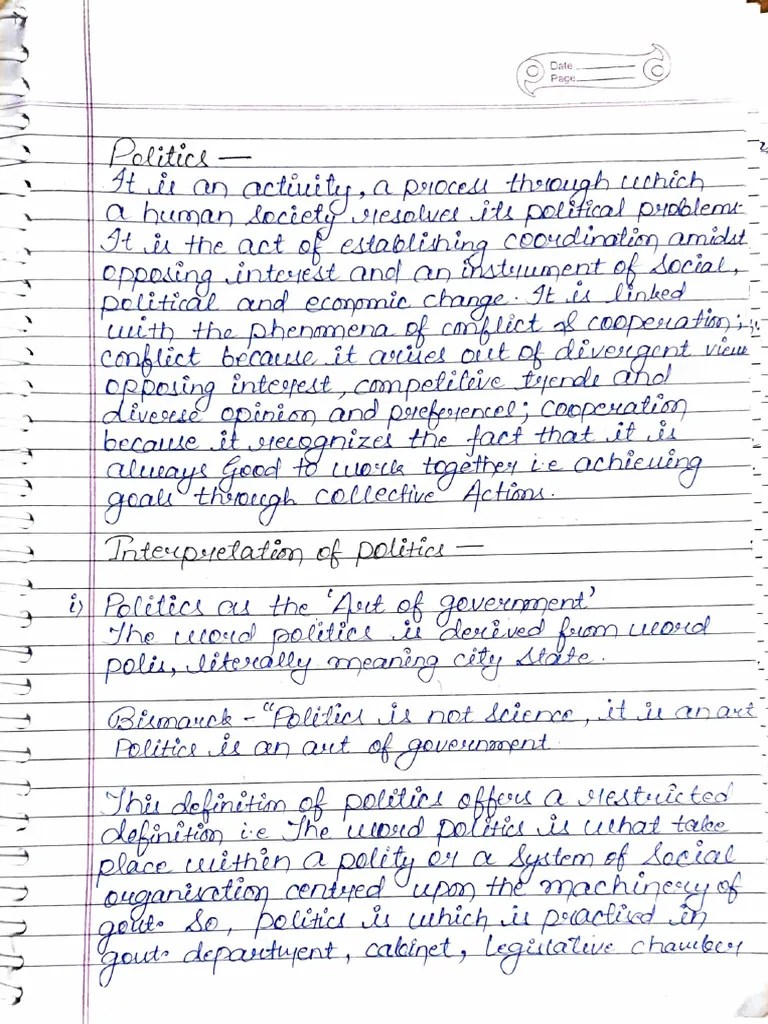 Date
Page
Politics —
It is an activity, a process through which
a human society resolves its political problems.
It is the act of establishing coordination amidst
opposing interest and an instrument of social,
political and economic change. It is linked
with the phenomena of conflict & cooperation;
conflict because it arises out of divergent view
opposing interest, competitive trends and
diverse opinion and preferences; cooperation
because it recognizes the fact that it is
always Good to work together i.e achieving
goals through collective Actions.
Interpretation of politics —
i) Politics as the 'Art of government'
The word politics is derived from word
polis, literally meaning city state.
Bismarck - "Politics is not science, it is an art
Politics is an art of government.
This definition of politics offers a restricted
definition i.e The word politics is what take
place within a polity or a system of social
organisation centred upon the machinery of
govt. So, politics is which is practised in
govt. department, cabinet, legislative chamber